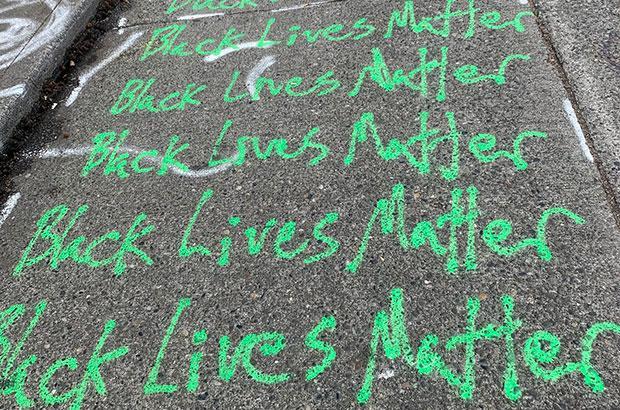 Black Lives Matter
Black Lives Matter
Black Lives Matter
Black Lives Matter
Black Lives Matter